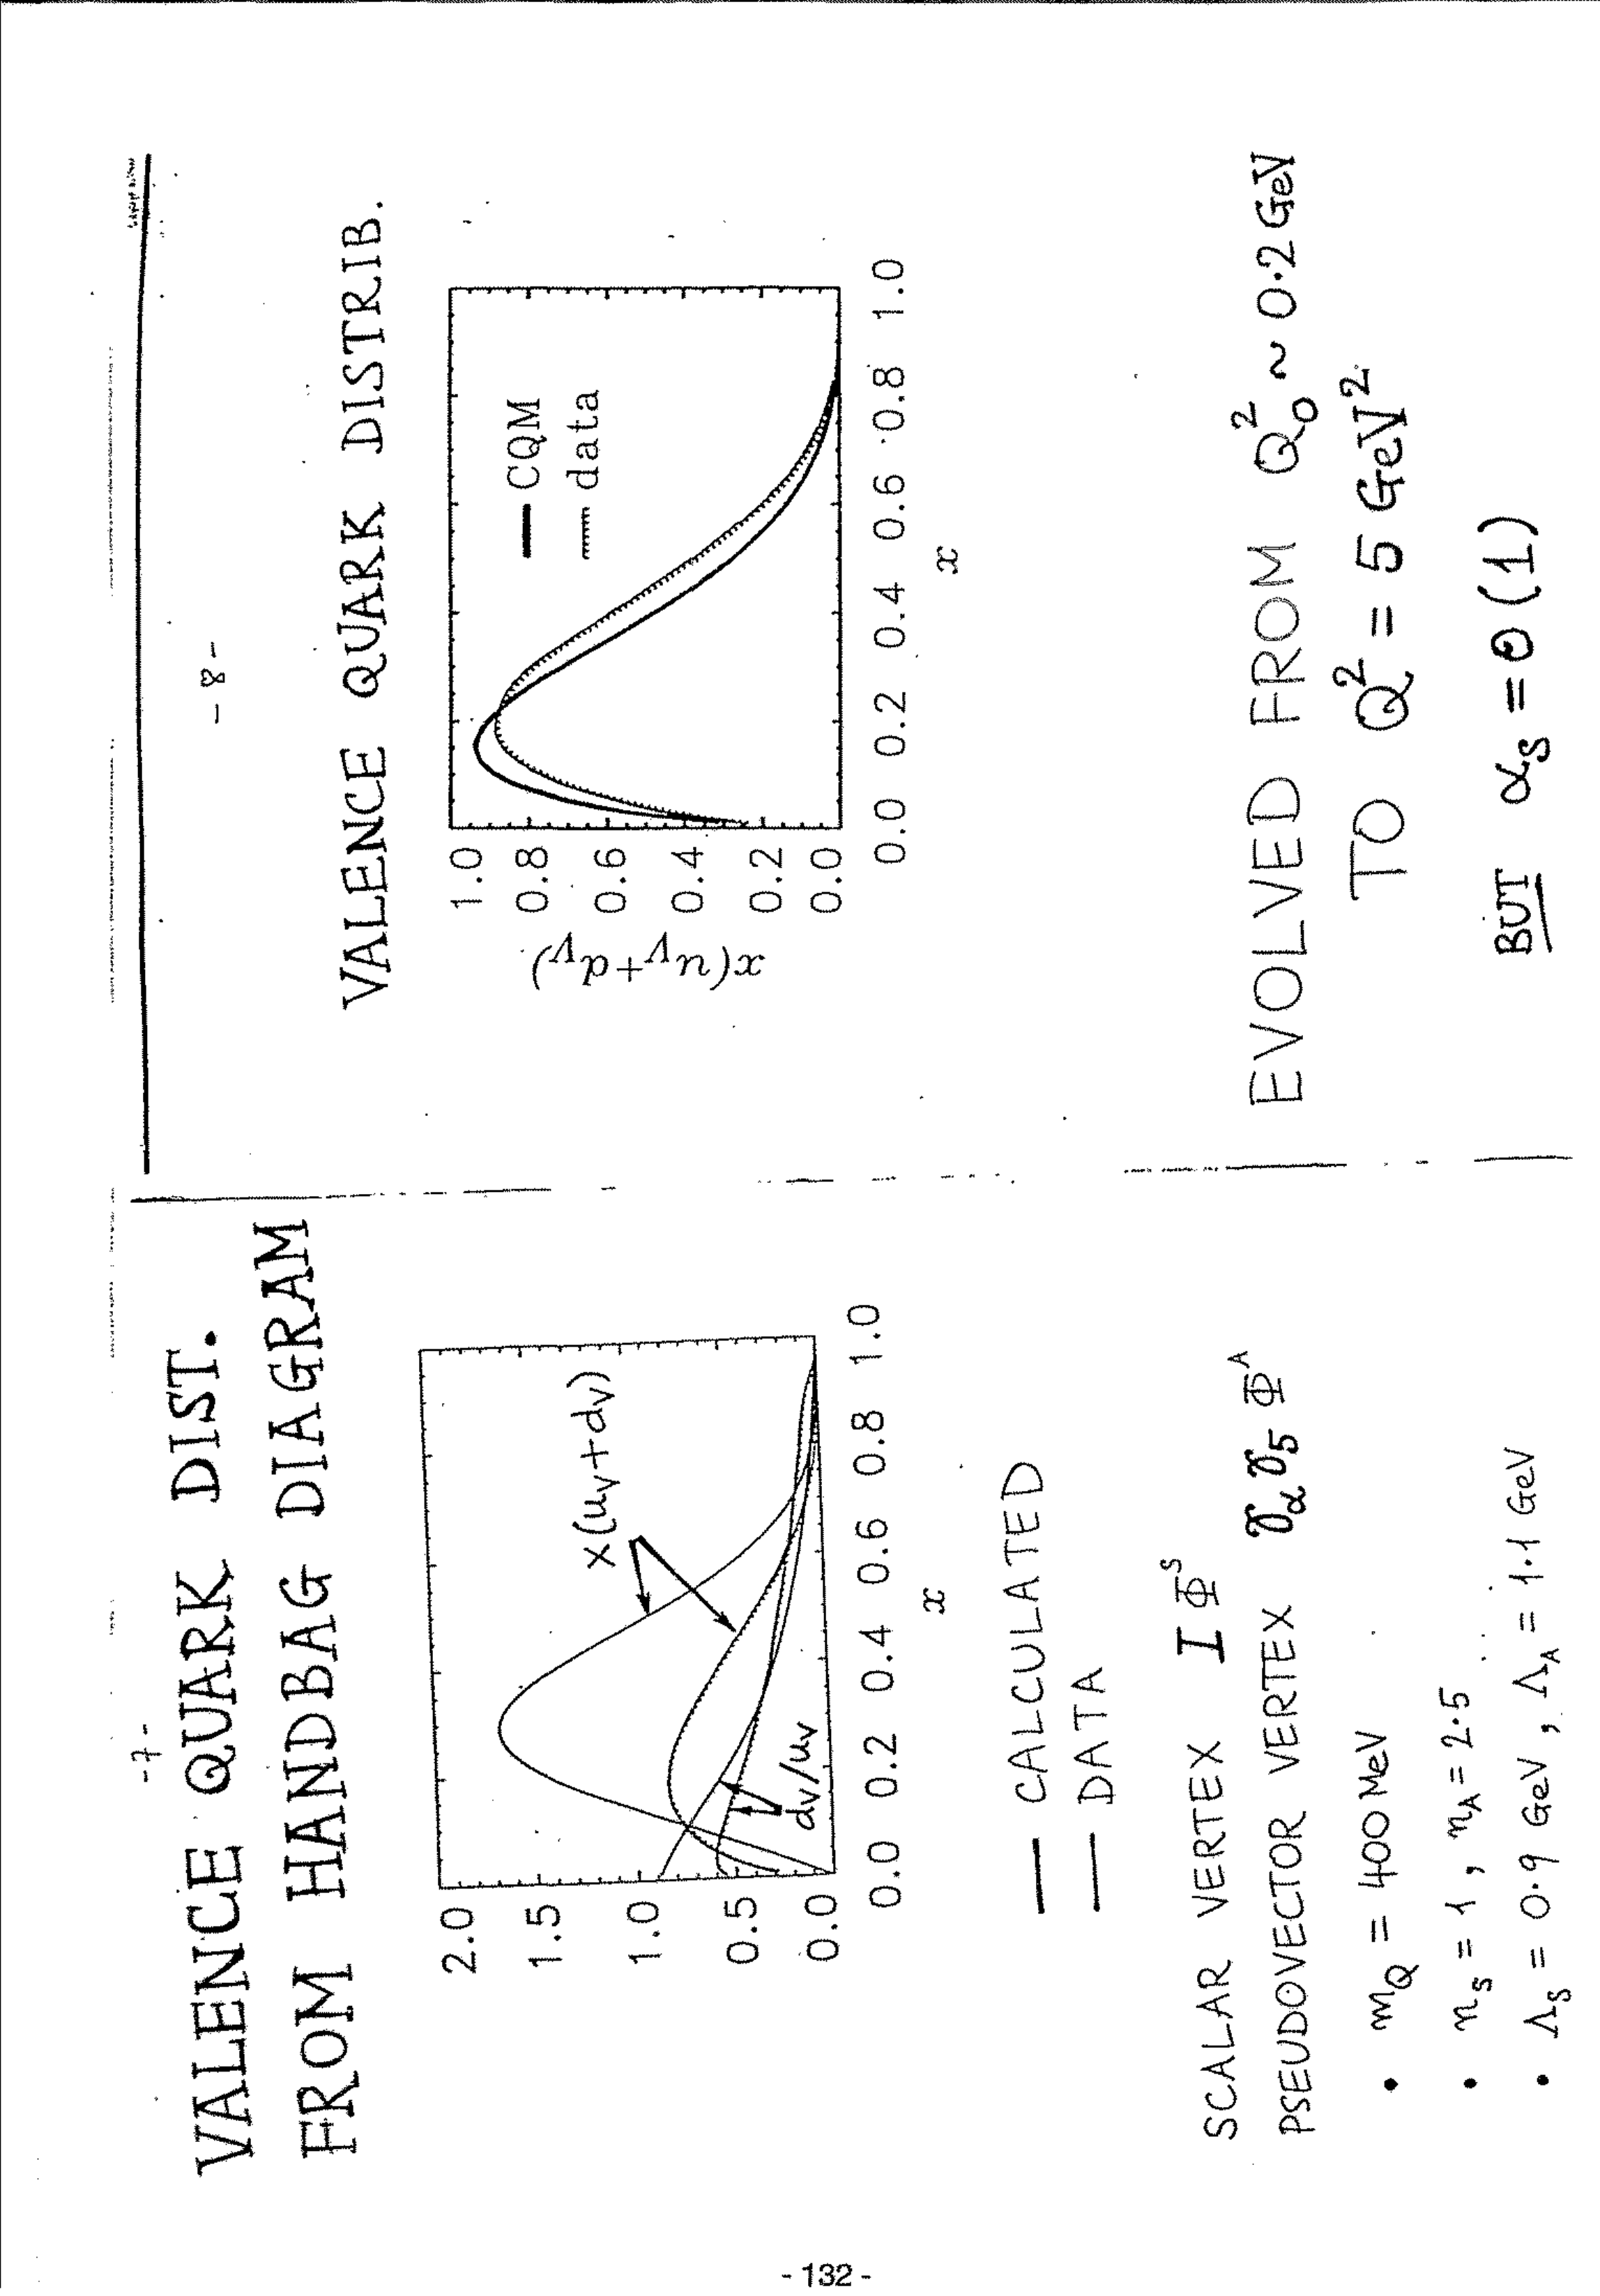 - 7 -
VALENCE QUARK DIST.
FROM HANDBAG DIAGRAM
2.0
1.5
1.0
0.5
0.0
0.0 0.2 0.4 0.6 0.8 1.0
x
x(uv+dv)
dv/uv
CALCULATED
DATA
SCALAR VERTEX I Φ^S
PSEUDOVECTOR VERTEX γ_α γ_5 Φ^A
• m_Q = 400 MeV
• n_S = 1, n_A = 2.5
• Λ_S = 0.9 GeV, Λ_A = 1.1 GeV
- 8 -
VALENCE QUARK DISTRIB.
x(u_V+d_V)
1.0
0.8
0.6
0.4
0.2
0.0
0.0 0.2 0.4 0.6 0.8 1.0
x
CQM
data
EVOLVED FROM Q_0^2 ~ 0.2 GeV
TO Q^2 = 5 GeV^2
BUT α_S = O(1)
- 132 -